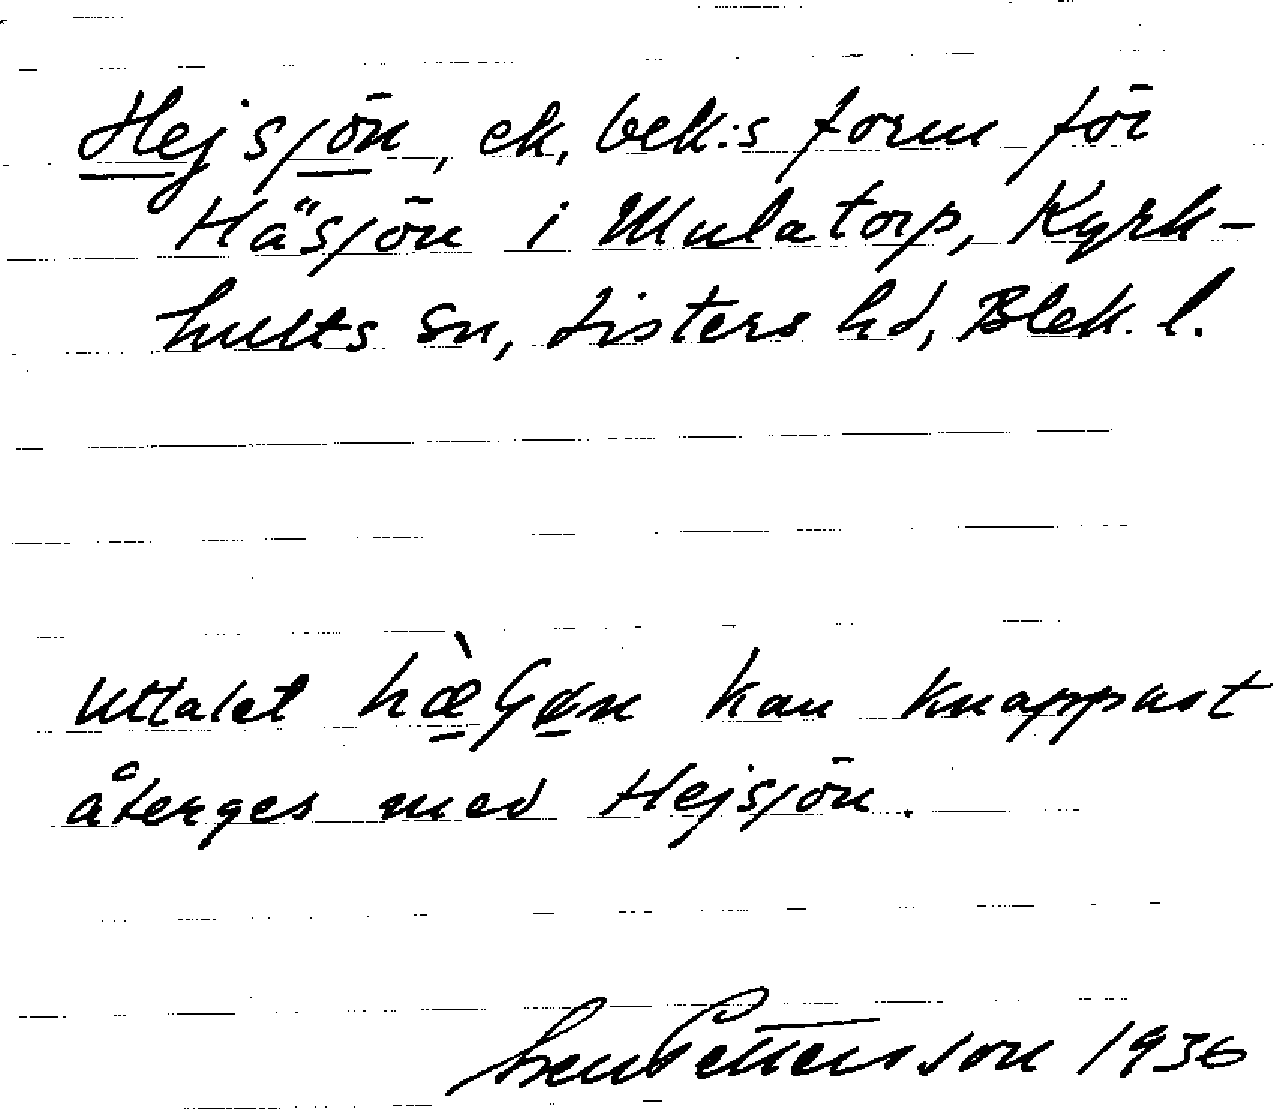 Hejsjön, ek. bek:s form för
Häsjön i Mulatorp, Kyrk-
hults sn, Listers hd, Blek. l.
Uttalet kan knappast
återges med Hejsjön.
Pettersson 1936